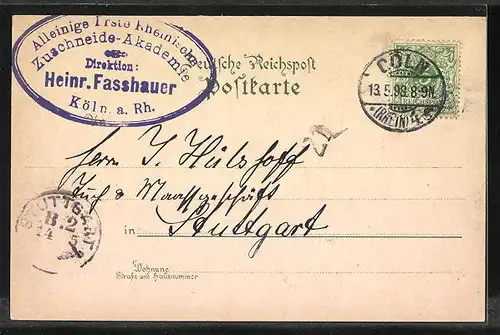 Alleinige Erste Rheinische
Zuschneide-Akademie
Direktion:
Heinr. Fasshauer
Köln a. Rh.
Deutsche Reichspost
Postkarte
CÖLN
13.5.98.8-9N.
(RHEIN)
Herrn J. Hülshoff
Tuch & Maassgeschäft
in Stuttgart
STUTTGART
Wohnung
Straße und Hausnummer